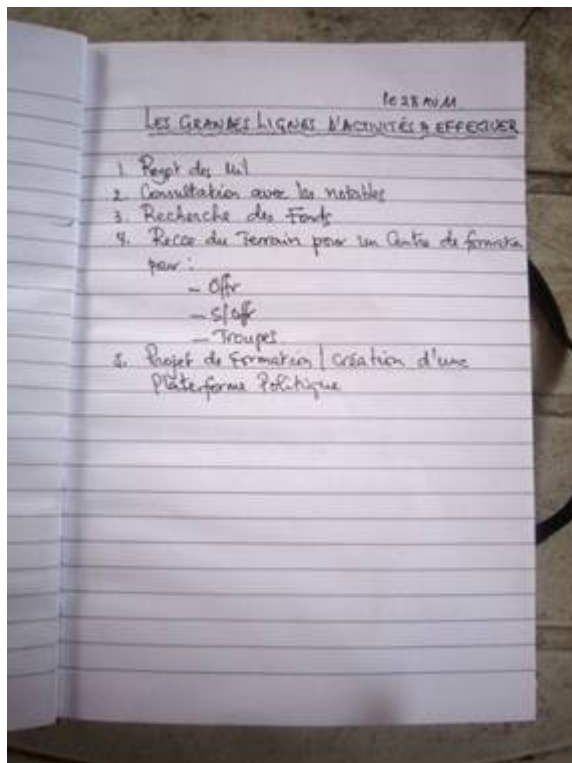 le 28 AV.
LES GRANDES LIGNES D'ACTIVITÉS A EFFECTUER
1. des Mil
2. Consultation avec les notables
3. Recherche des Fonds
4. Recce du Terrain pour un Centre de formation
pour :
- Offr
- S/Offr
- Troupes
5. Projet de Formation / Création d'une
Plateforme Politique